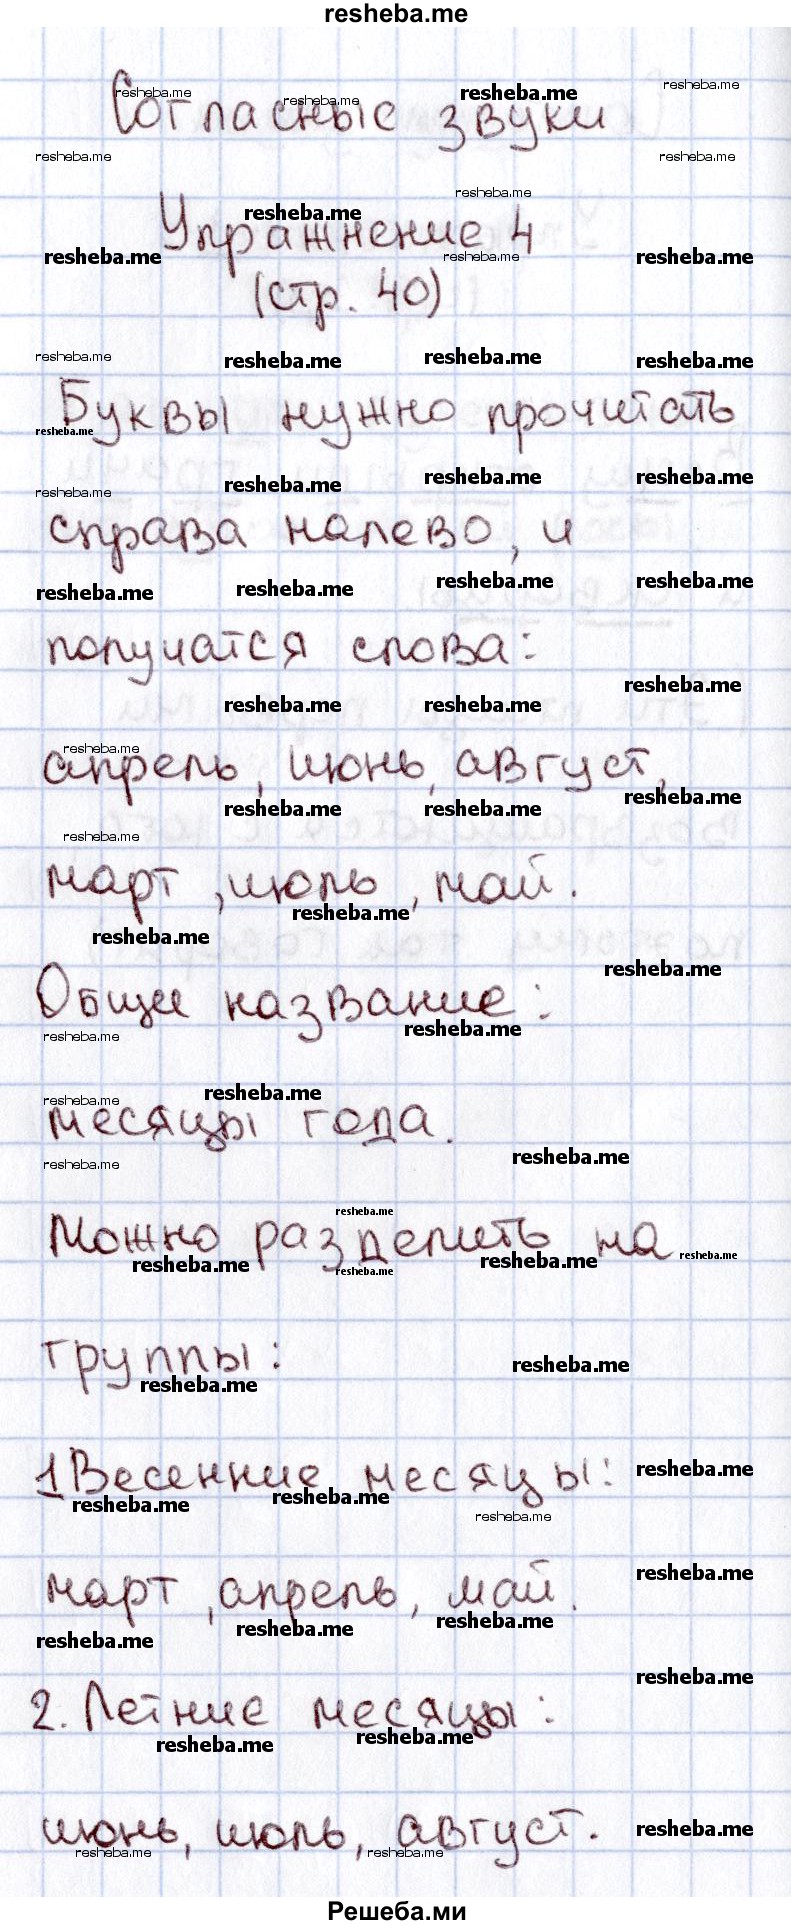 resheba.me
Согласные звуки
Упражнение 4
(стр. 40)
Буквы нужно прочитать
справа налево, и
получатся слова:
апрель, июнь, август,
март, июль, май.
Общее название:
месяцы года.
Можно разделить на
группы:
1 Весенние месяцы:
март, апрель, май.
2. Летние месяцы:
июнь, июль, август.
Решеба.ми